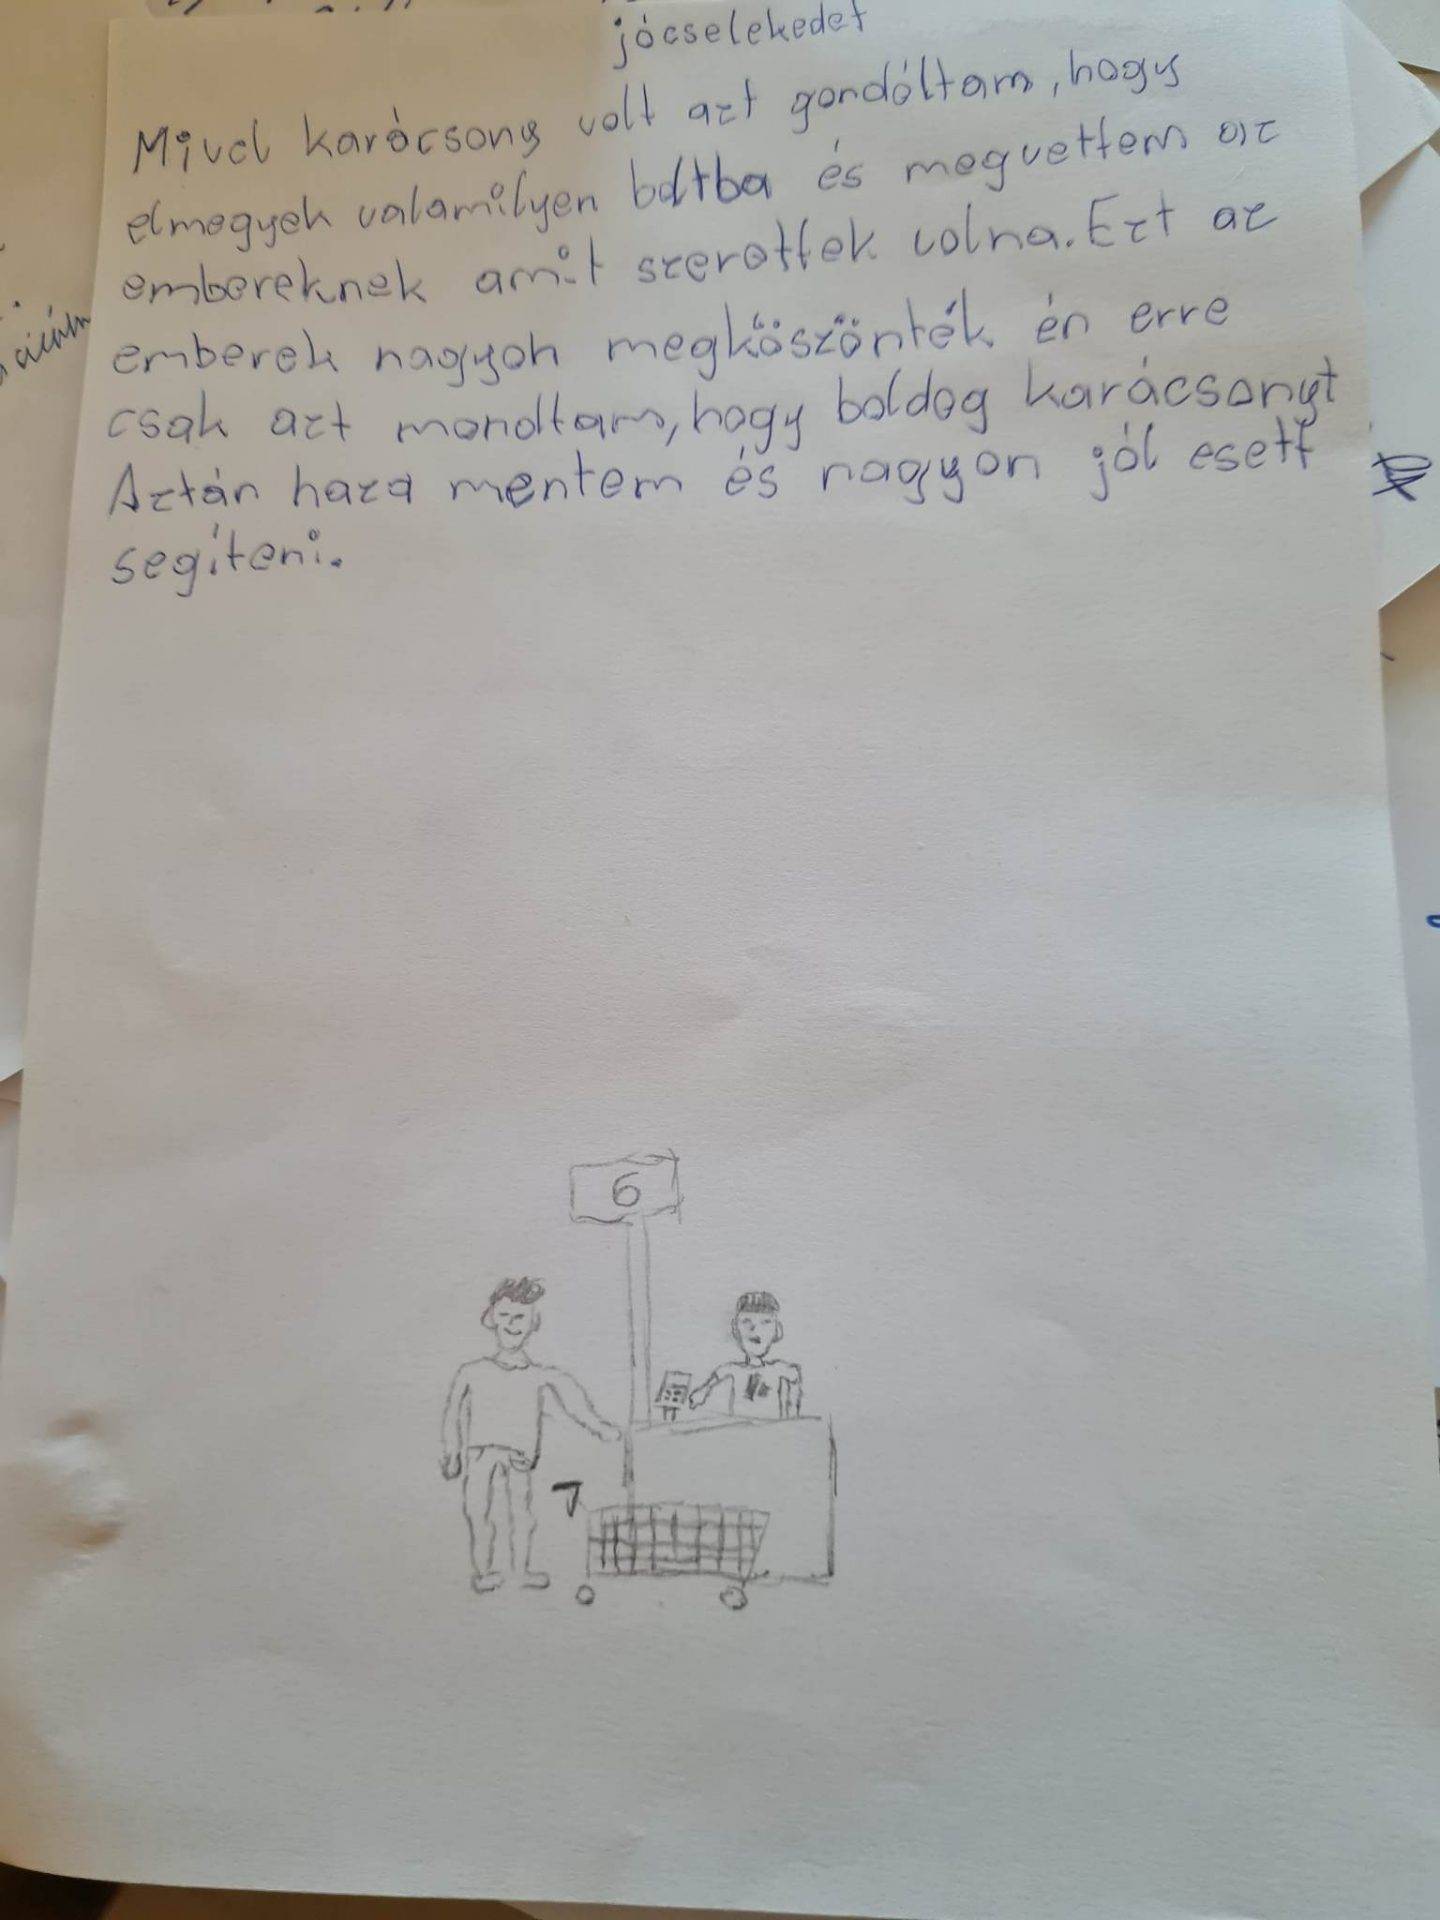 jócselekedet
Mivel karácsony volt azt gondóltam, hogy
elmegyek valamilyen boltba és megvettem az
embereknek amit szerettek volna. Ezt az
emberek nagyon megköszönték én erre
csak azt mondtam, hogy boldog karácsonyt
Aztán haza mentem és nagyon jól esett
segíteni.
6